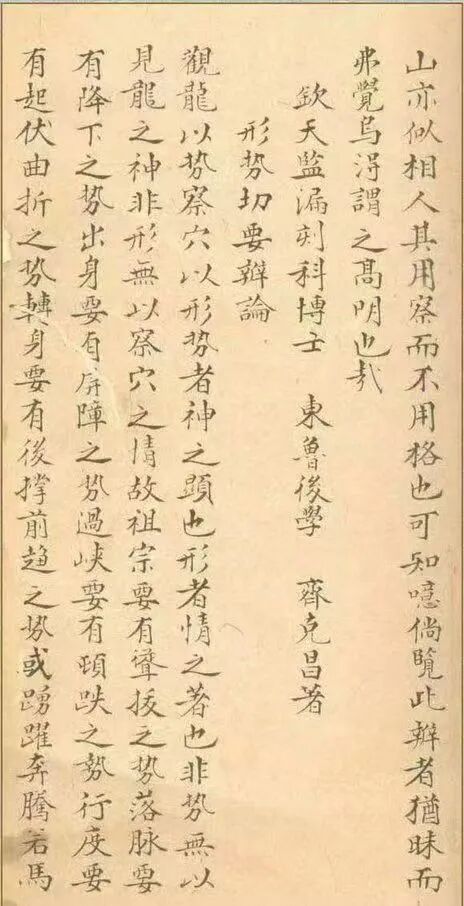 山亦似相人其用察而不用格也可知噫倘覽此辯者猶昧而
弗覺烏淂謂之髙明也㢤
欽天監漏刻科博士　東魯後學　齊克昌著
形势切要辯論
觀龍以势察穴以形势者神之顕也形者情之著也非势無以
見龍之神非形無以察穴之情故祖宗要有聳拔之势落脉要
有降下之势出身要有屏障之势過峡要有頓跌之勢行度要
有起伏曲折之势轉身要有後撑前趋之势或踴躍奔騰若馬